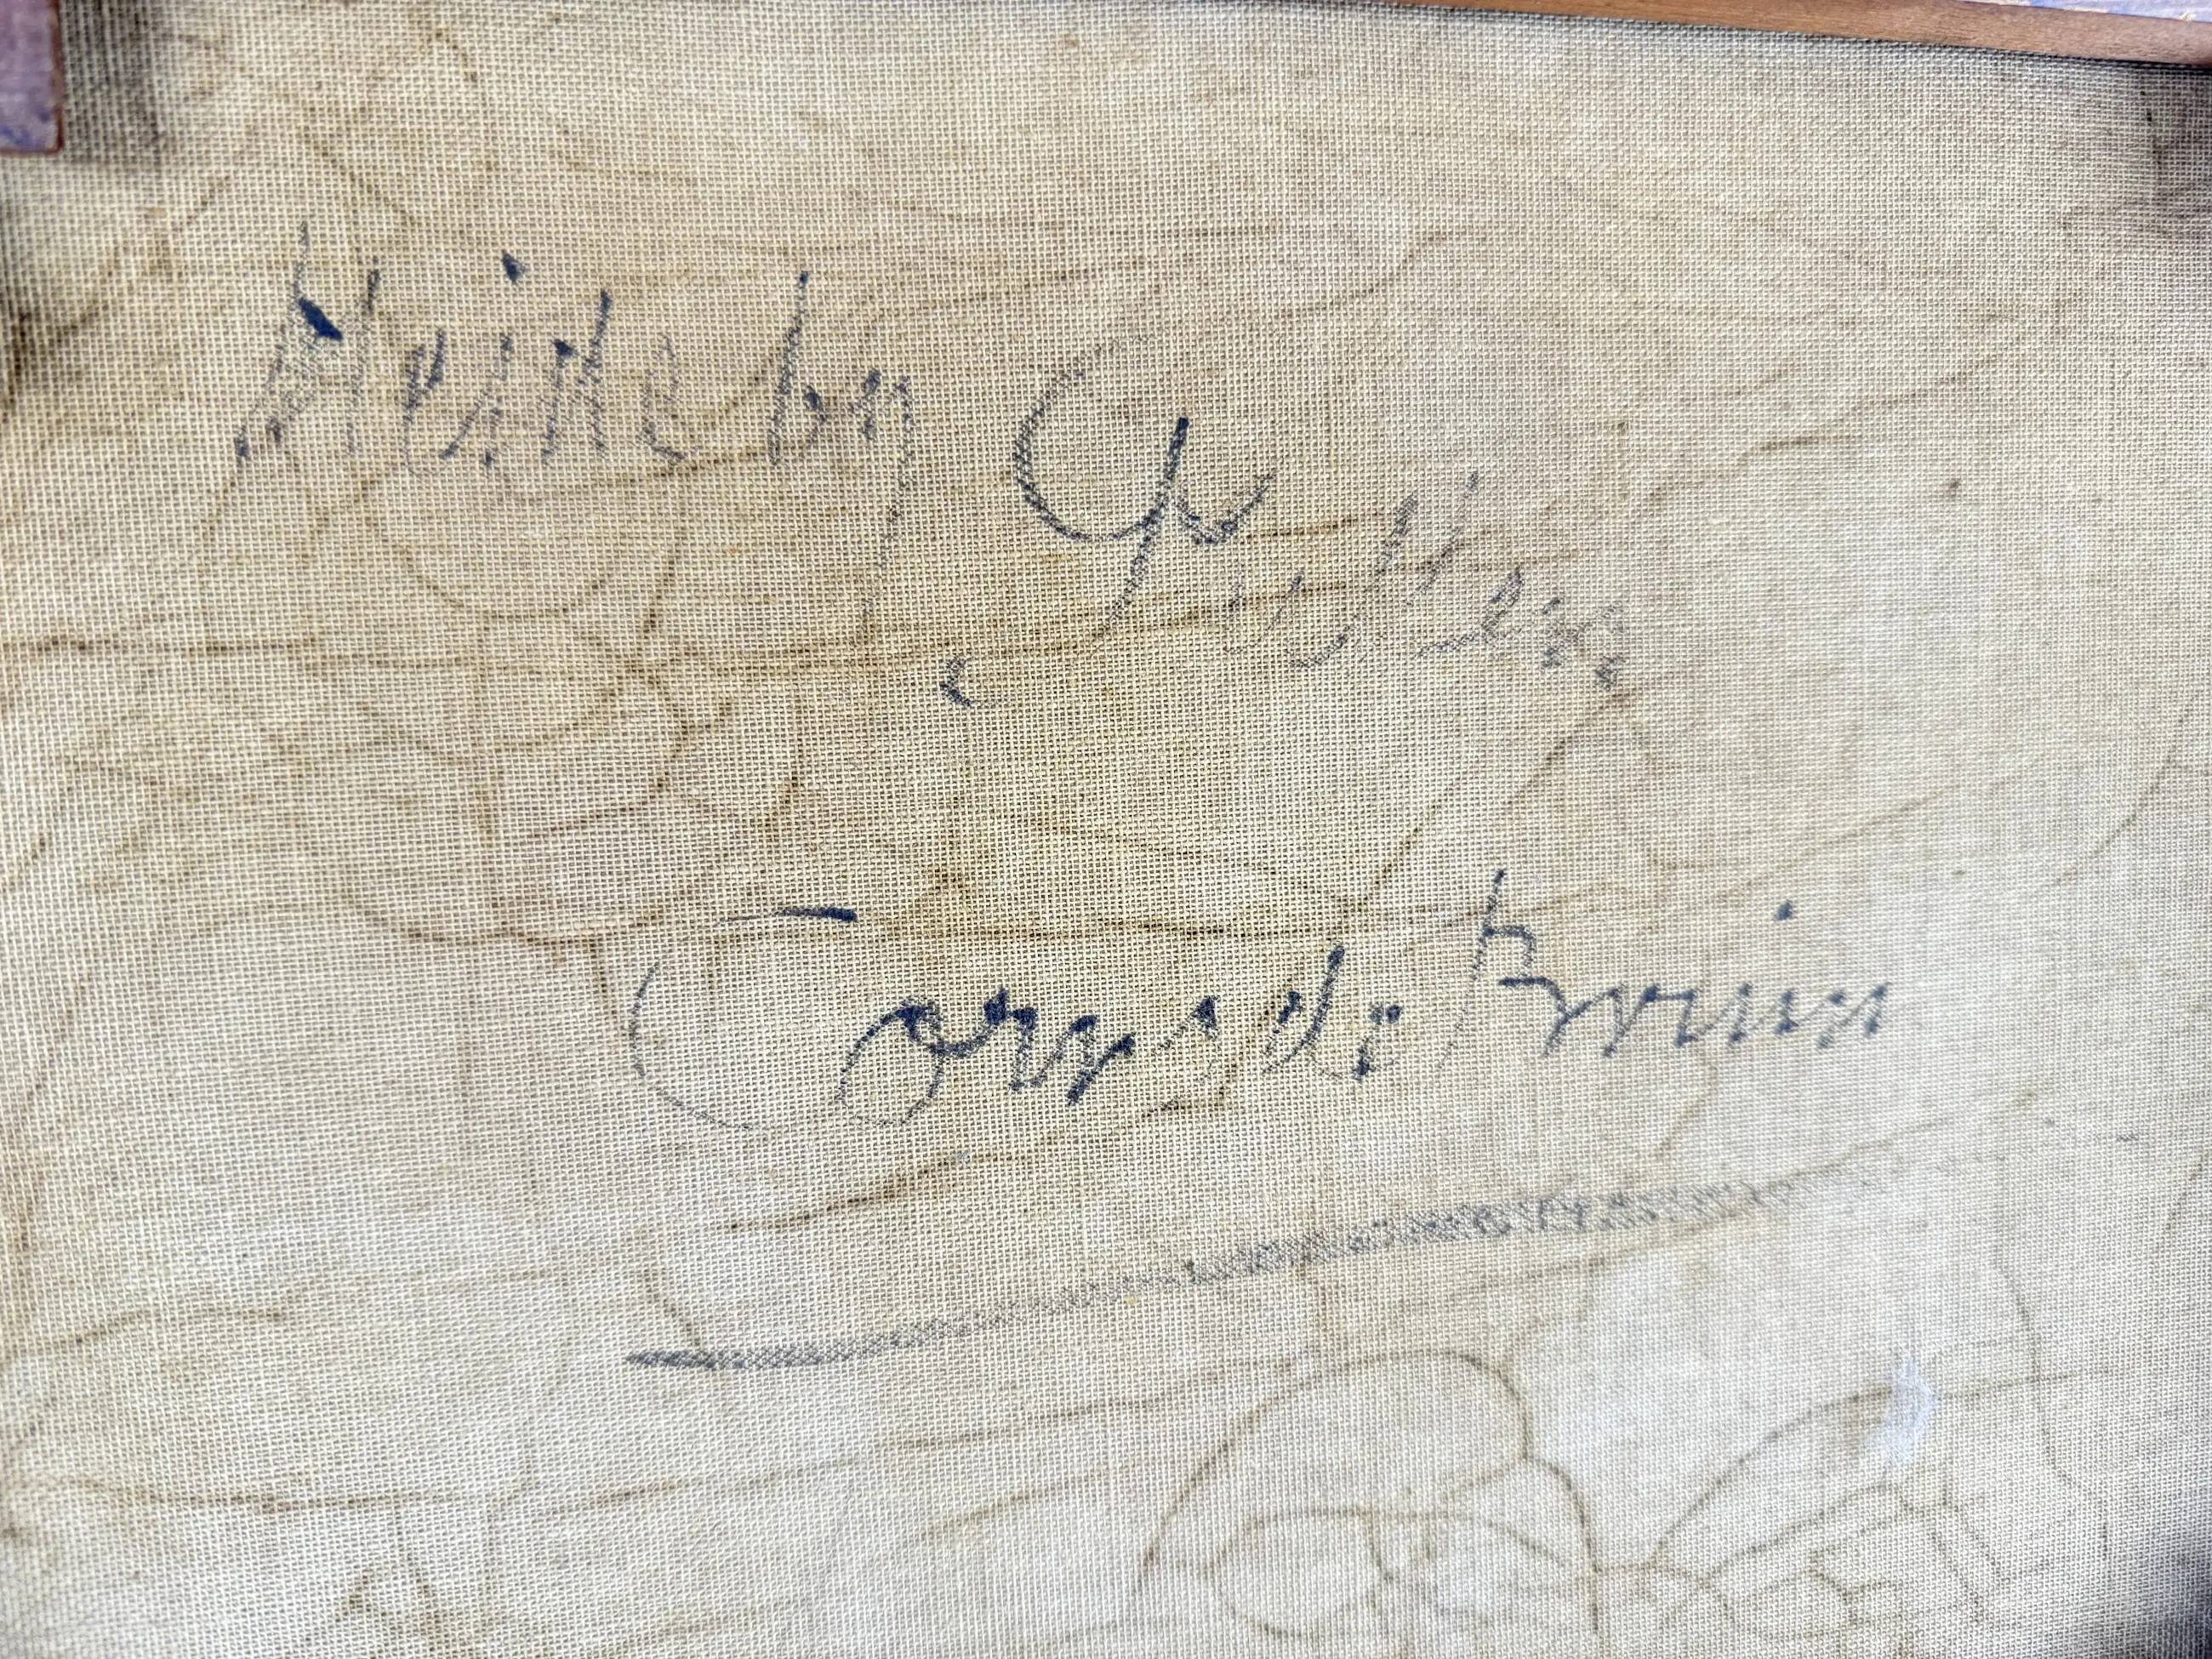 Heide by Putten
Corns de Bruin